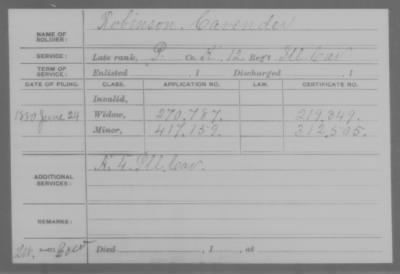 NAME OF SOLDIER: Robinson, Cavender
SERVICE: Late rank, P. Co. K, 12 Reg't Ill Cav
TERM OF SERVICE: Enlisted , 1 Discharged , 1
DATE OF FILING. CLASS. APPLICATION NO. LAW. CERTIFICATE NO.
Invalid,
1880 June 24 Widow, 270,787. 219,849.
Minor, 417,159. 312,505.
ADDITIONAL SERVICES: A. 4. Ill. Cav.
REMARKS:
Died , 1 , at